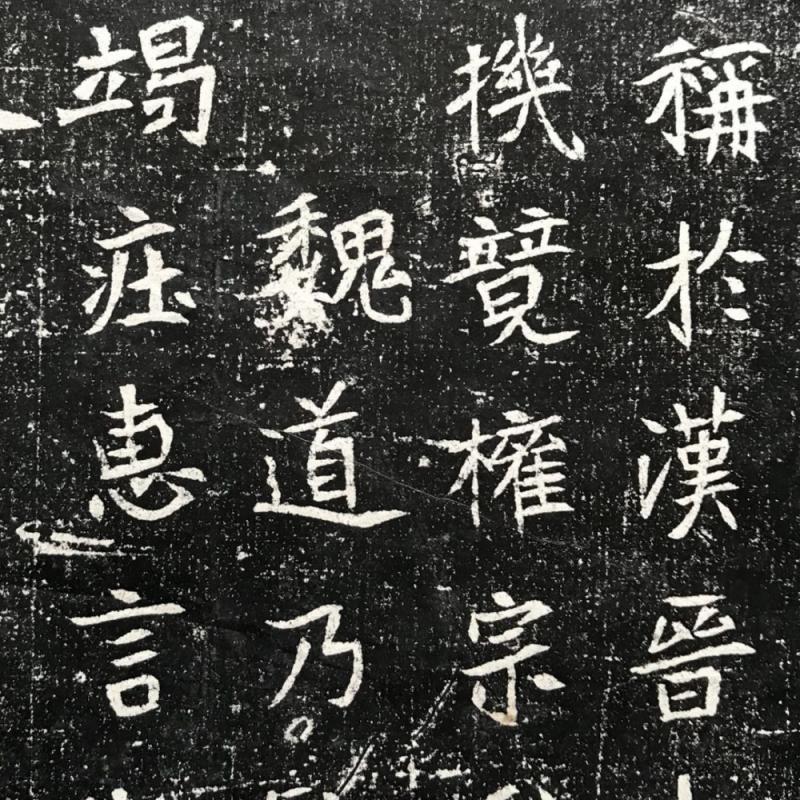 稱於漢晉
機竟榷宗
魏道乃
竭㽵惠言